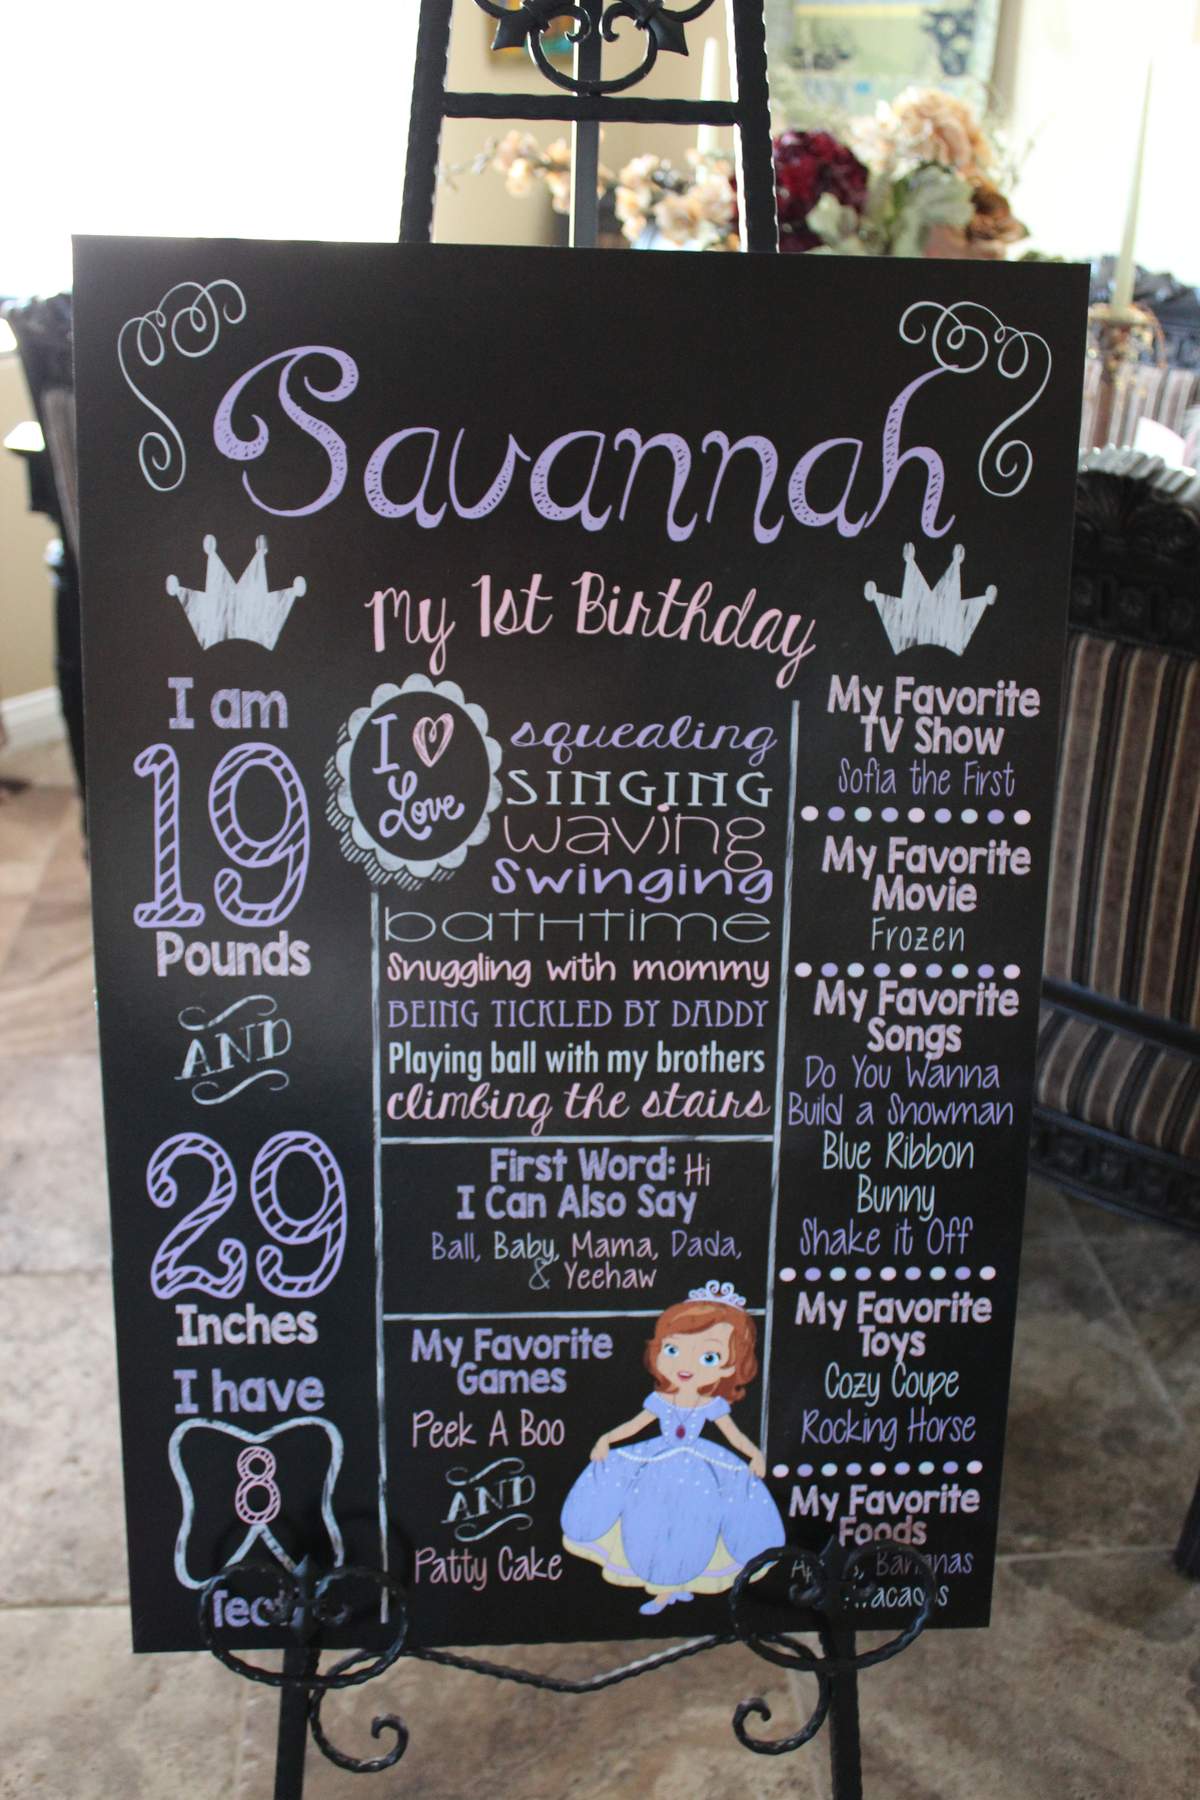 Savannah
My 1st Birthday
I am
19
Pounds
AND
29
Inches
I have
8
I
Love
squealing
SINGING
waving
Swinging
bathtime
Snuggling with mommy
BEING TICKLED BY DADDY
Playing ball with my brothers
climbing the stairs
First Word: Hi
I Can Also Say
Ball, Baby, Mama, Dada,
& Yeehaw
My Favorite
Games
Peek A Boo
AND
Patty Cake
My Favorite
TV Show
Sofia the First
My Favorite
Movie
Frozen
My Favorite
Songs
Do You Wanna
Build a Snowman
Blue Ribbon
Bunny
Shake it Off
My Favorite
Toys
Cozy Coupe
Rocking Horse
My Favorite
Foods
Bananas